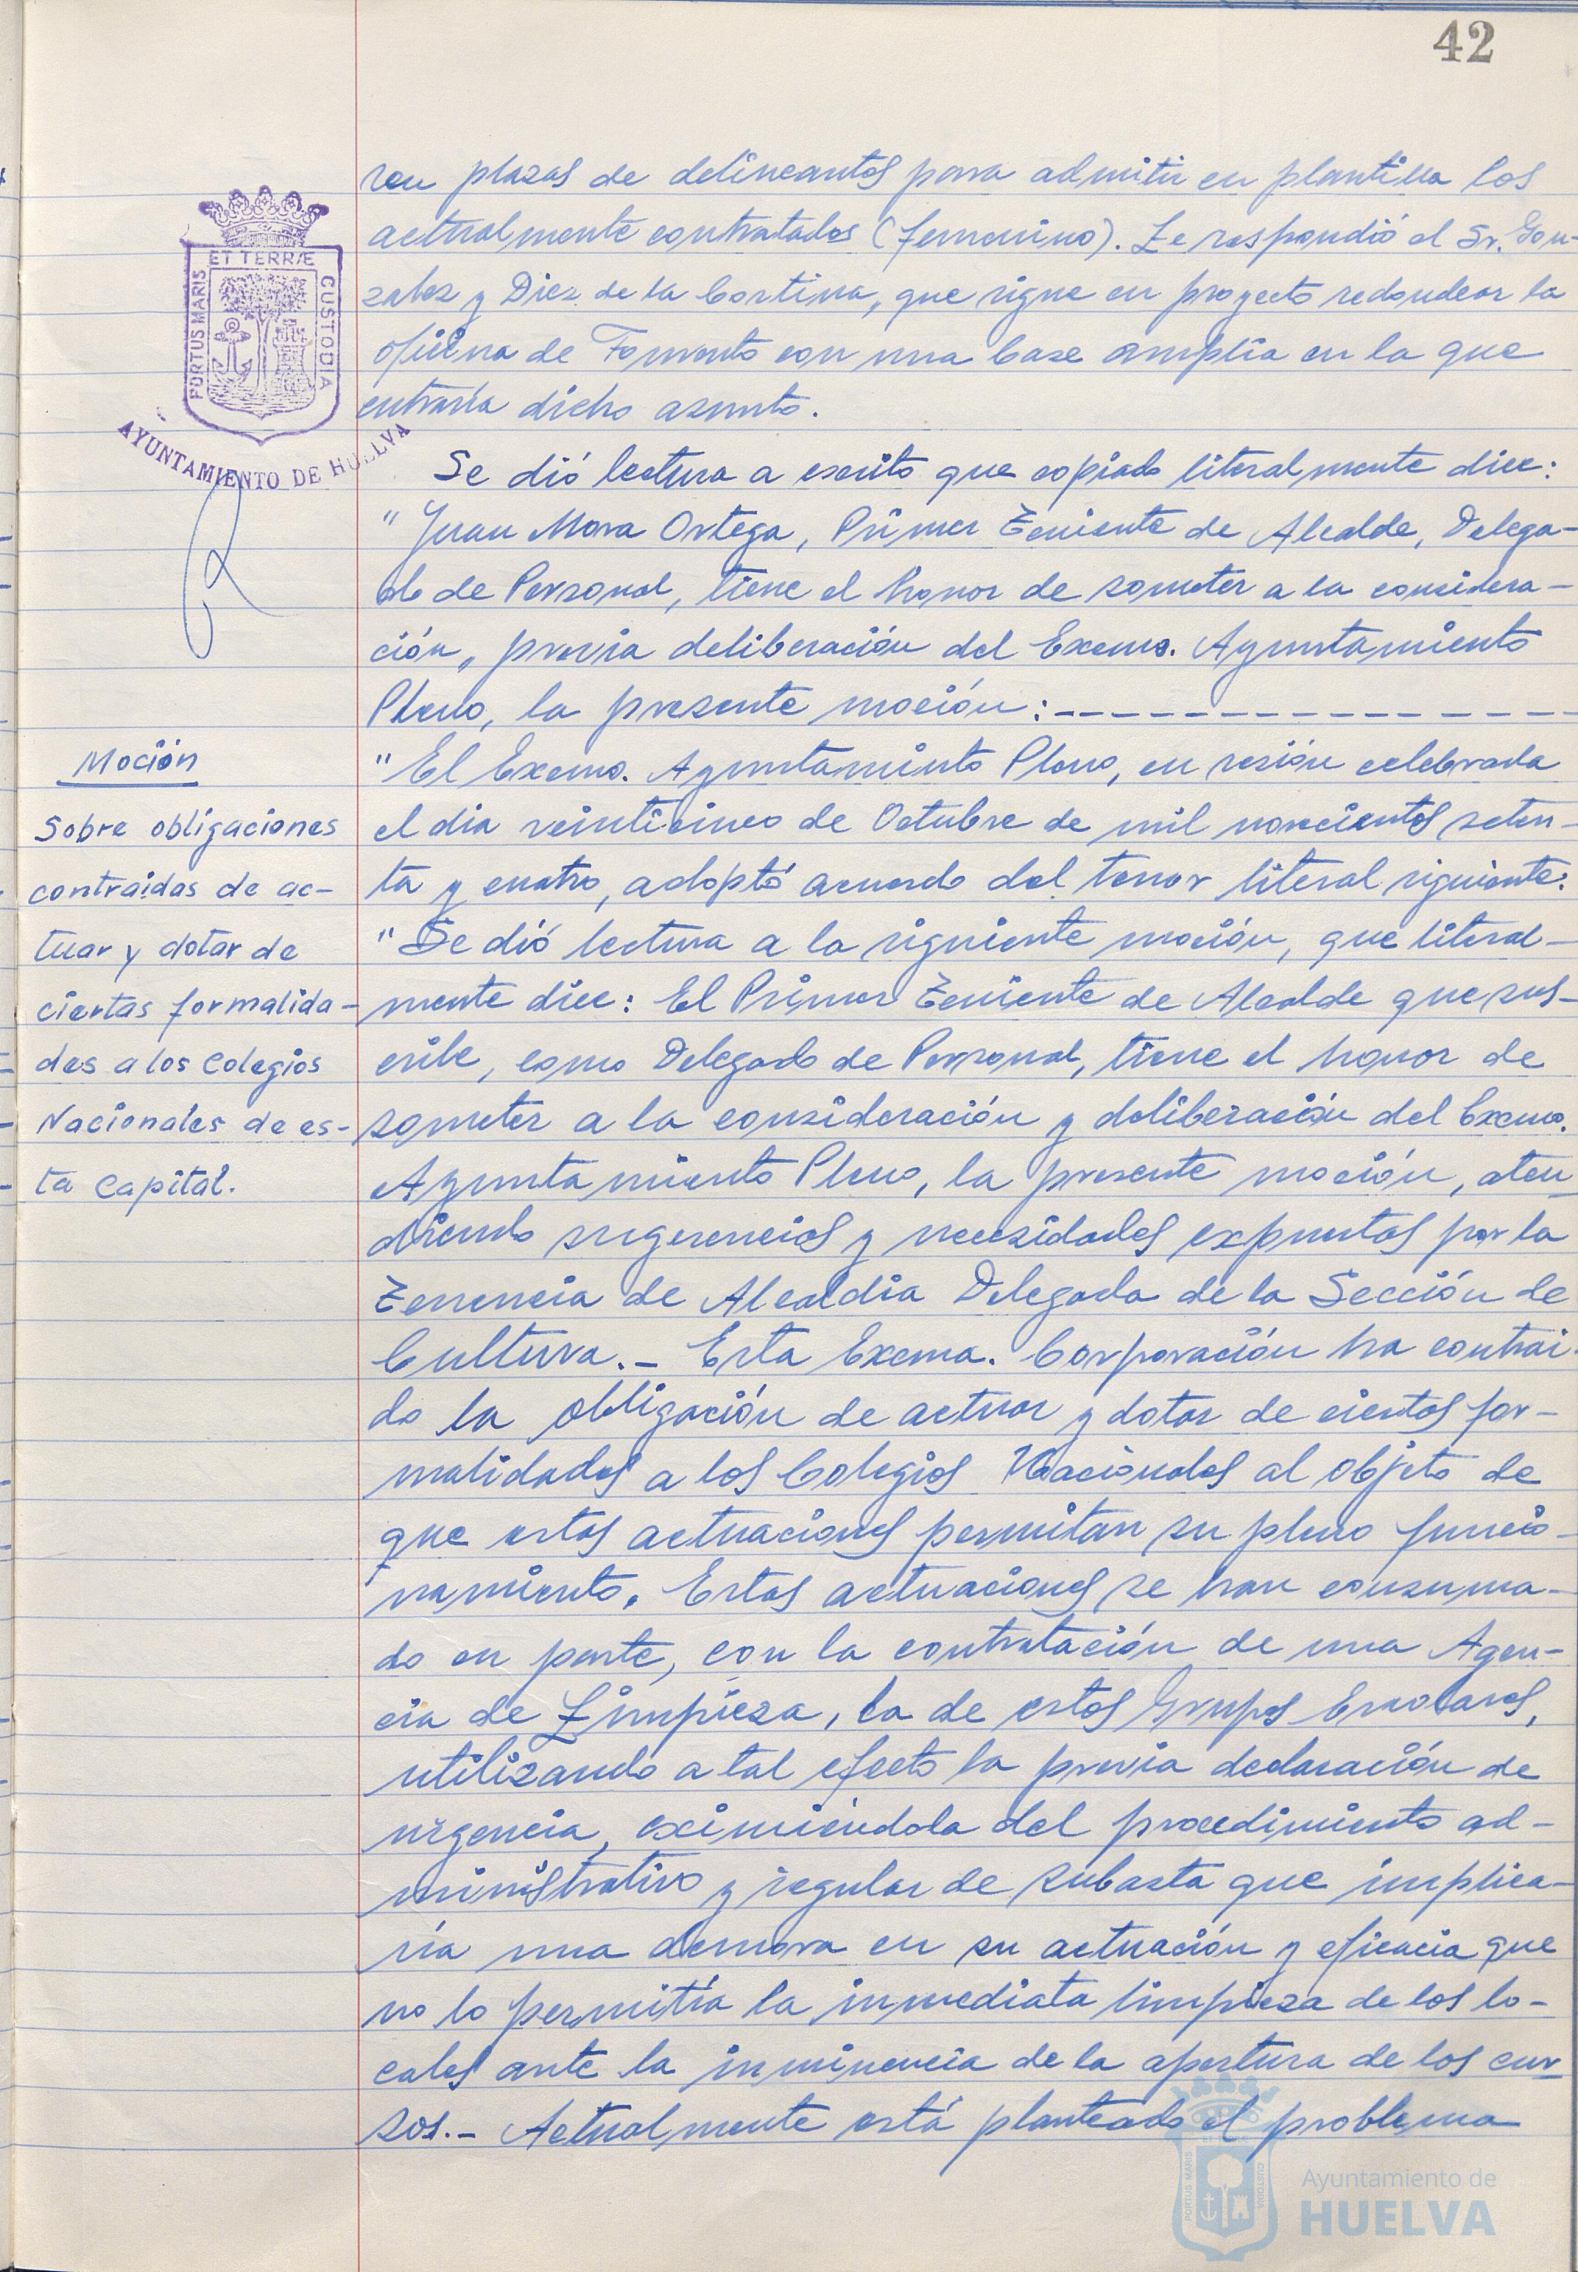 42
ren plazas de delineantes para admitir en plantilla los
actualmente contratados (femenino). Le respondió el Sr. Gon-
zalez y Diez de la Cortina, que sigue en proyecto redondear la
oficina de Fomento con una base amplia en la que
entraría dicho asunto.
Se dió lectura a escrito que copiado literalmente dice:
"Juan Mora Ortega, Primer Teniente de Alcalde, Delega-
do de Personal, tiene el honor de someter a la considera-
ción, previa deliberación del Excmo. Ayuntamiento
Pleno, la presente moción:- - - - - - - - - - - - -
"El Excmo. Ayuntamiento Pleno, en sesión celebrada
el dia veinticinco de Octubre de mil novecientos seten-
ta y cuatro, adoptó acuerdo del tenor literal siguiente:
"Se dió lectura a la siguiente moción, que literal-
mente dice: El Primer Teniente de Alcalde que sus-
cribe, como Delegado de Personal, tiene el honor de
someter a la consideración y deliberación del Excmo.
Ayuntamiento Pleno, la presente moción, aten-
diendo sugerencias y necesidades expuestas por la
Tenencia de Alcaldia Delegada de la Sección de
Cultura.- Esta Excma. Corporación ha contrai-
do la obligación de actuar y dotar de ciertas for-
malidades a los Colegios Nacionales al objeto de
que estas actuaciones permitan su pleno funcio-
namiento. Estas actuaciones se han consuma-
do en parte, con la contratación de una Agen-
cia de Limpieza, la de estos Grupos Escolares,
utilizando a tal efecto la previa declaración de
urgencia, eximiéndola del procedimiento ad-
ministrativo y regular de subasta que implica-
ría una demora en su actuación y eficacia que
no lo permitía la inmediata limpieza de los lo-
cales ante la inminencia de la apertura de los cur-
sos.- Actualmente está planteado el problema
ET TERRÆ
PORTUS MARIS
CUSTODIA
AYUNTAMIENTO DE HUELVA
Moción
Sobre obligaciones
contraidas de ac-
tuar y dotar de
ciertas formalida-
des a los Colegios
Nacionales de es-
ta Capital.
PORTUS MARIS
CUSTODIA
Ayuntamiento de
HUELVA